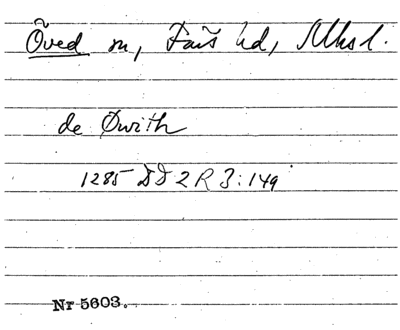 Öved sn, Färs hd, Mlhs l.
de Øwith
1285 DD 2 R 3:149
Nr 5603.